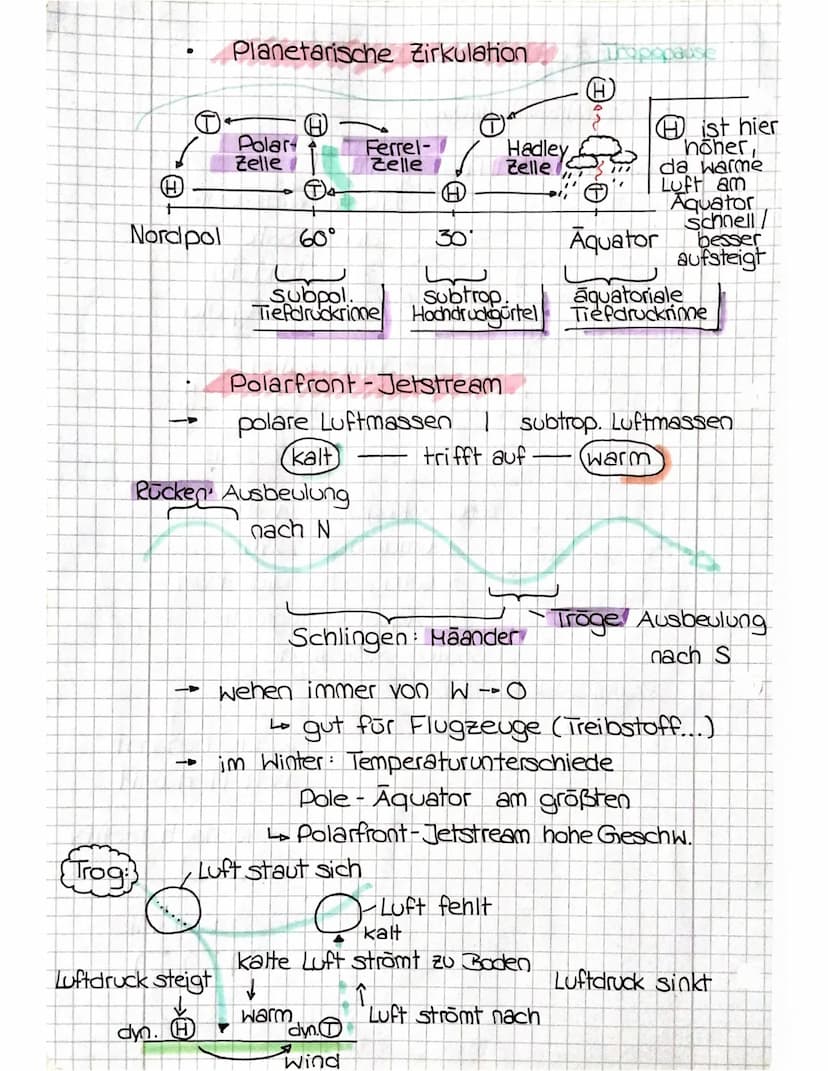 • Planetarische Zirkulation
Tropopause
H
T H T
Polar-
Zelle
Ferrel-
Zelle
Hadley
Zelle
H T H T
H ist hier
höher,
da warme
Luft am
Äquator
schnell/
besser
aufsteigt
Nordpol 60° 30° Äquator
subpol.
Tiefdruckrinne
subtrop.
Hochdruckgürtel
äquatoriale
Tiefdruckrinne
• Polarfront-Jetstream
→ polare Luftmassen | subtrop. Luftmassen
kalt — trifft auf — warm
Rücken: Ausbeulung
nach N
Schlingen: Mäander
Tröge: Ausbeulung
nach S
→ wehen immer von W → O
↳ gut für Flugzeuge (Treibstoff...)
→ im Winter: Temperaturunterschiede
Pole - Äquator am größten
↳ Polarfront-Jetstream hohe Geschw.
Trog:
Luft staut sich
Luft fehlt
kalt
kalte Luft strömt zu Boden
Luftdruck steigt
Luftdruck sinkt
warm
Luft strömt nach
dyn. H
dyn. T
Wind